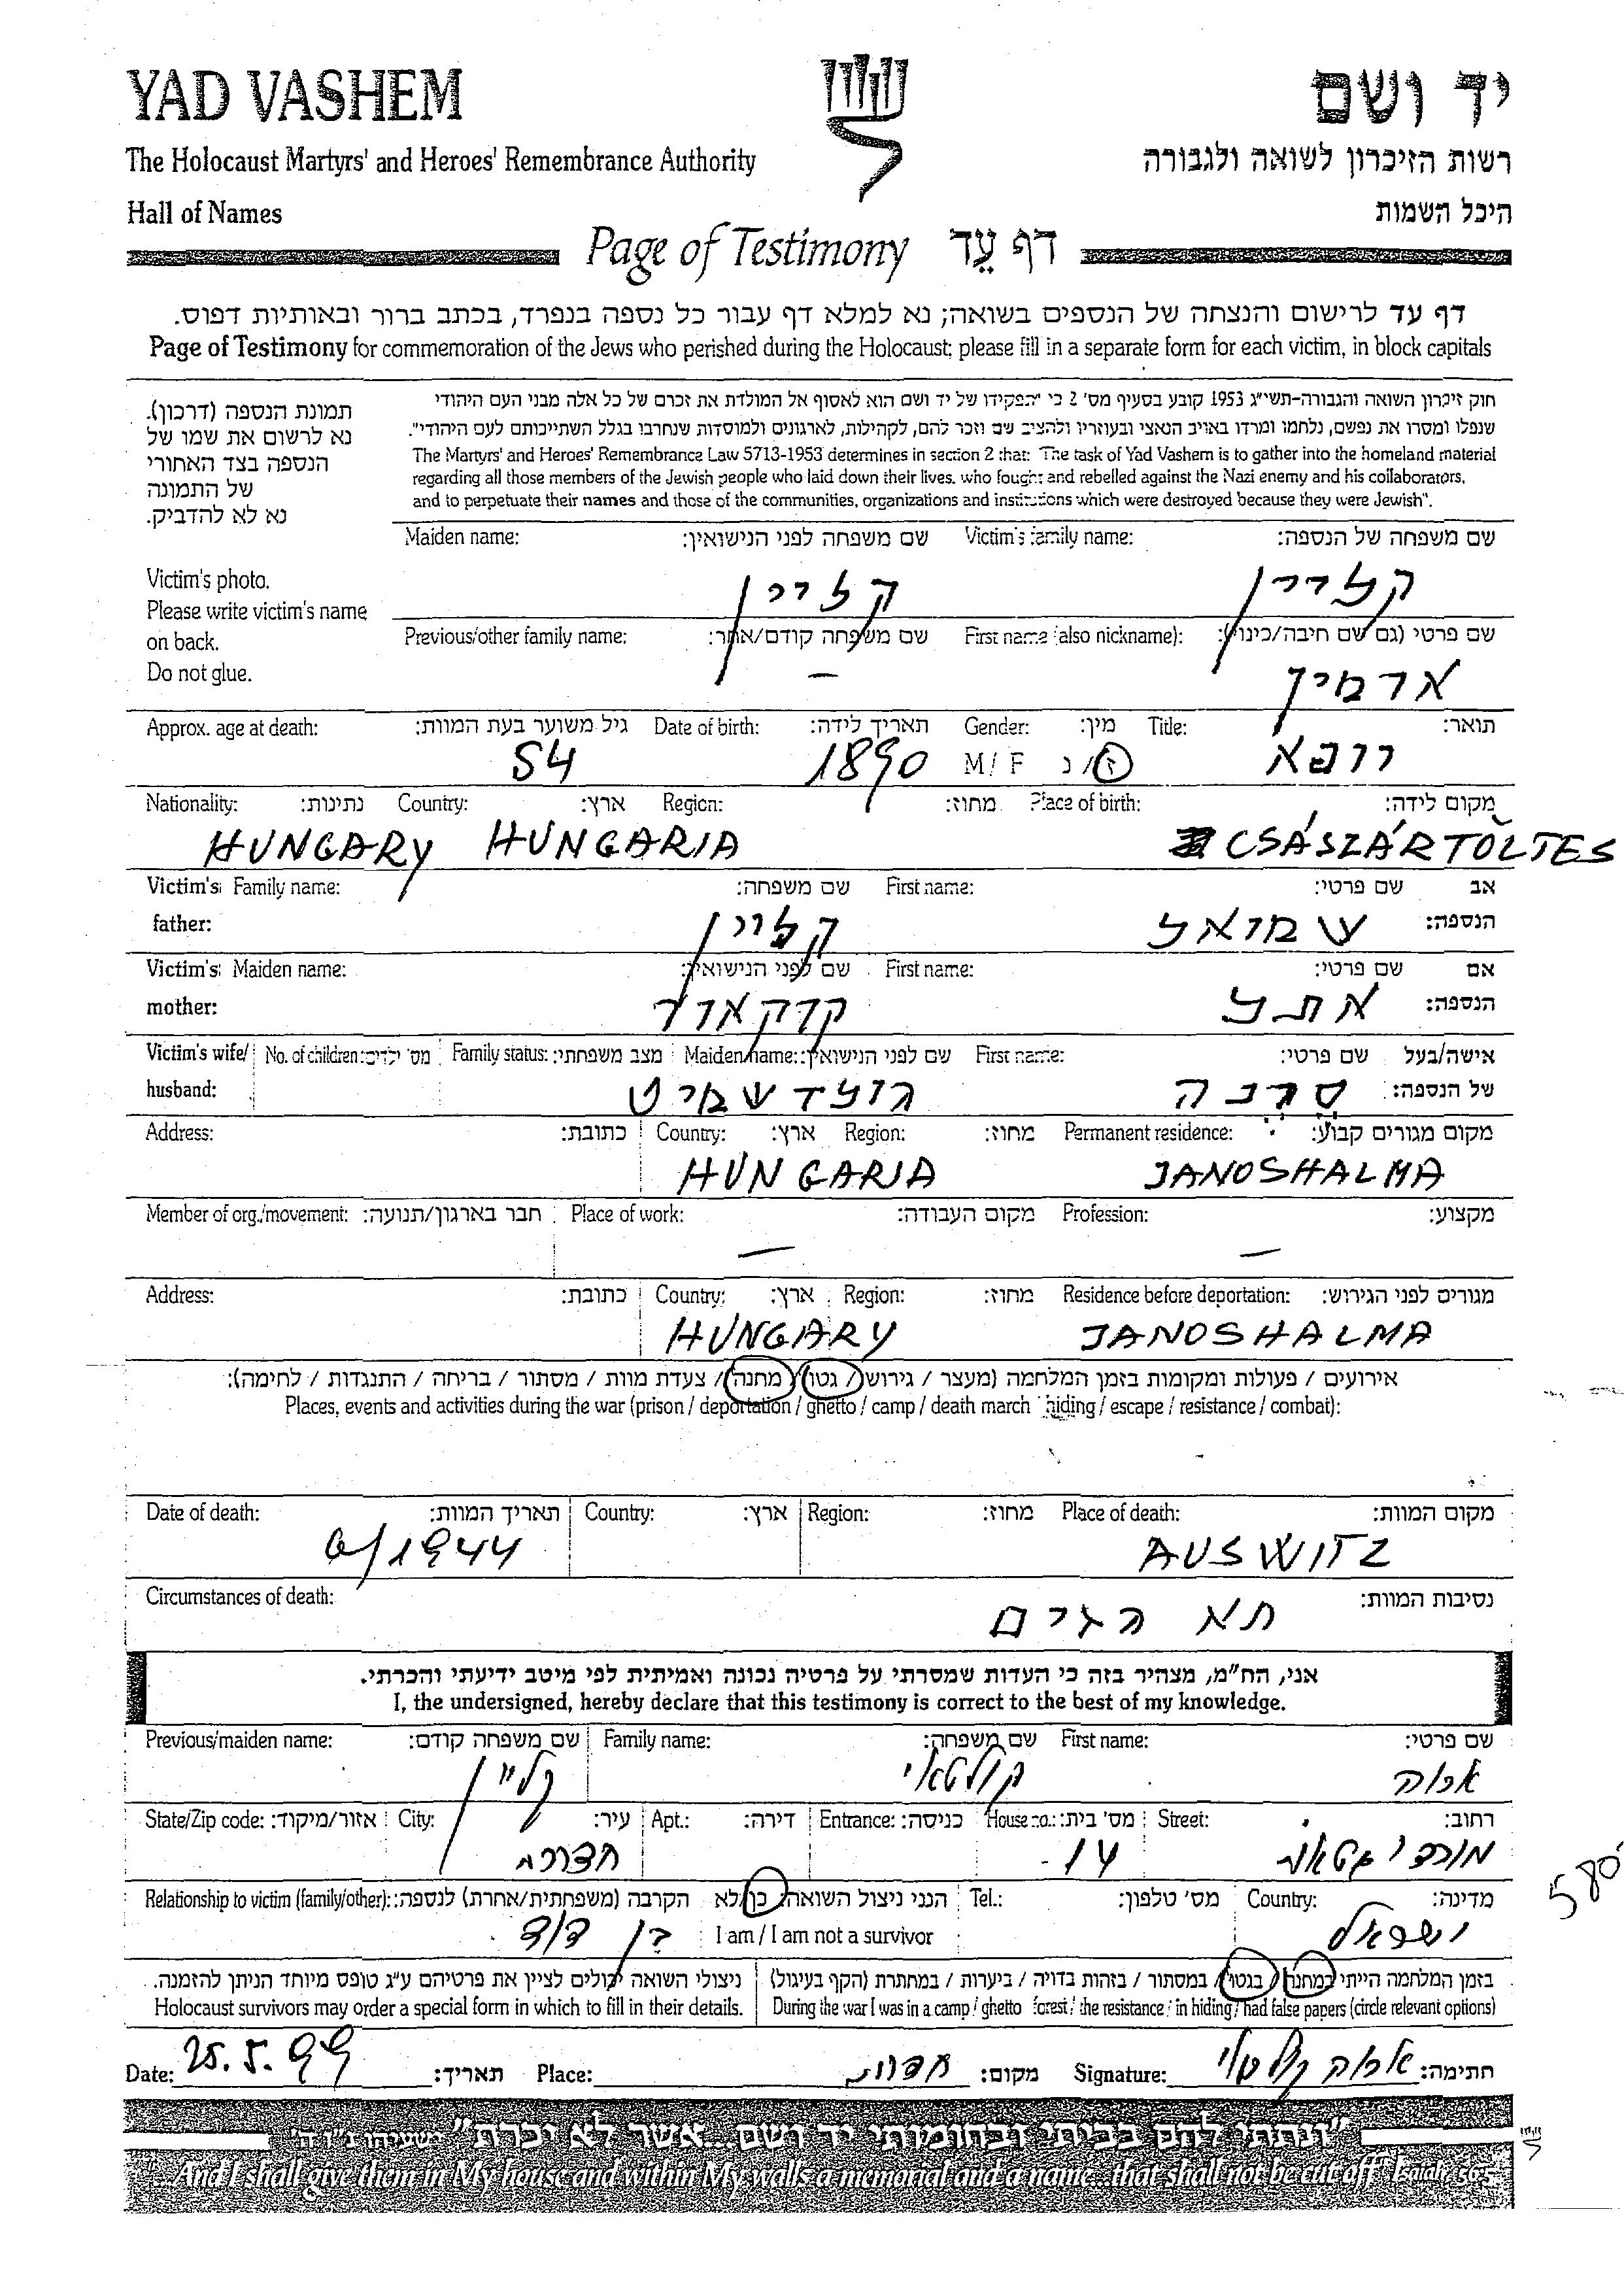 YAD VASHEM
יד ושם
The Holocaust Martyrs' and Heroes' Remembrance Authority
רשות הזיכרון לשואה ולגבורה
Hall of Names
היכל השמות
Page of Testimony דף עֵד
דף עד לרישום והנצחה של הנספים בשואה; נא למלא דף עבור כל נספה בנפרד, בכתב ברור ובאותיות דפוס.
Page of Testimony for commemoration of the Jews who perished during the Holocaust; please fill in a separate form for each victim, in block capitals
תמונת הנספה (דרכון).
נא לרשום את שמו של
הנספה בצד האחורי
של התמונה
נא לא להדביק.
Victim's photo.
Please write victim's name
on back.
Do not glue.
חוק זיכרון השואה והגבורה-תשי"ג 1953 קובע בסעיף מס' 2 כי "תפקידו של יד ושם הוא לאסוף אל המולדת את זכרם של כל אלה מבני העם היהודי
שנפלו ומסרו את נפשם, נלחמו ומרדו באויב הנאצי ובעוזריו ולהציב שם וזכר להם, לקהילות, לארגונים ולמוסדות שנחרבו בגלל השתייכותם לעם היהודי".
The Martyrs' and Heroes' Remembrance Law 5713-1953 determines in section 2 that: "The task of Yad Vashem is to gather into the homeland material
regarding all those members of the Jewish people who laid down their lives, who fought and rebelled against the Nazi enemy and his collaborators,
and to perpetuate their names and those of the communities, organizations and institutions which were destroyed because they were Jewish".
Maiden name: שם משפחה לפני הנישואין: Victim's family name: שם משפחה של הנספה:
קליין קליין
Previous/other family name: שם משפחה קודם/אחר: First name (also nickname): שם פרטי (גם שם חיבה/כינוי):
— ארמין
Approx. age at death: גיל משוער בעת המוות: Date of birth: תאריך לידה: Gender: מין: Title: תואר:
54 1890 M/F ז/נ רופא
Nationality: נתינות: Country: ארץ: Region: מחוז: Place of birth: מקום לידה:
HUNGARY HUNGARIA CSÁSZÁRTÖLTES
Victim's father: Family name: שם משפחה: First name: שם פרטי: אב הנספה:
קליין שמואל
Victim's mother: Maiden name: שם לפני הנישואין: First name: שם פרטי: אם הנספה:
אתל
Victim's wife/husband: No. of children: מס' ילדים: Family status: מצב משפחתי: Maiden name: שם לפני הנישואין: First name: שם פרטי: אישה/בעל של הנספה:
גולדשמיט
Address: כתובת: Country: ארץ: Region: מחוז: Permanent residence: מקום מגורים קבוע:
HUNGARIA JANOSHALMA
Member of org./movement: חבר בארגון/תנועה: Place of work: מקום העבודה: Profession: מקצוע:
— —
Address: כתובת: Country: ארץ: Region: מחוז: Residence before deportation: מגורים לפני הגירוש:
HUNGARY JANOSHALMA
אירועים / פעולות ומקומות בזמן המלחמה (מעצר / גירוש / גטו / מחנה / צעדת מוות / מסתור / בריחה / התנגדות / לחימה):
Places, events and activities during the war (prison / deportation / ghetto / camp / death march / hiding / escape / resistance / combat):
Date of death: תאריך המוות: Country: ארץ: Region: מחוז: Place of death: מקום המוות:
6/1944 AUSWITZ
Circumstances of death: נסיבות המוות:
תא הגזים
אני, הח"מ, מצהיר בזה כי העדות שמסרתי על פרטיה נכונה ואמיתית לפי מיטב ידיעתי והכרתי.
I, the undersigned, hereby declare that this testimony is correct to the best of my knowledge.
Previous/maiden name: שם משפחה קודם: Family name: שם משפחה: First name: שם פרטי:
קליין קולטאי
State/Zip code: אזור/מיקוד: City: עיר: Apt.: דירה: Entrance: כניסה: House no.: מס' בית: Street: רחוב:
חדרה 14
Relationship to victim (family/other): הקרבה (משפחתית/אחרת) לנספה: הנני ניצול השואה: כן/לא Tel.: מס' טלפון: Country: מדינה:
בן דוד I am / I am not a survivor ישראל
580
ניצולי השואה יכולים לציין את פרטיהם ע"ג טופס מיוחד הניתן להזמנה. בזמן המלחמה הייתי במחנה / בגטו / במסתור / בזהות בדויה / ביערות / במחתרת (הקף בעיגול)
Holocaust survivors may order a special form in which to fill in their details. During the war I was in a camp / ghetto / forest / the resistance / in hiding / had false papers (circle relevant options)
Date: 25.5.99 תאריך: Place: חדרה מקום: Signature: קולטאי חתימה:
"ונתתי להם בביתי ובחומותי יד ושם...אשר לא יכרת" ישעיהו נ"ו ה'
"...And I shall give them in My house and within My walls a memorial and a name...that shall not be cut off" Isaiah 56:5